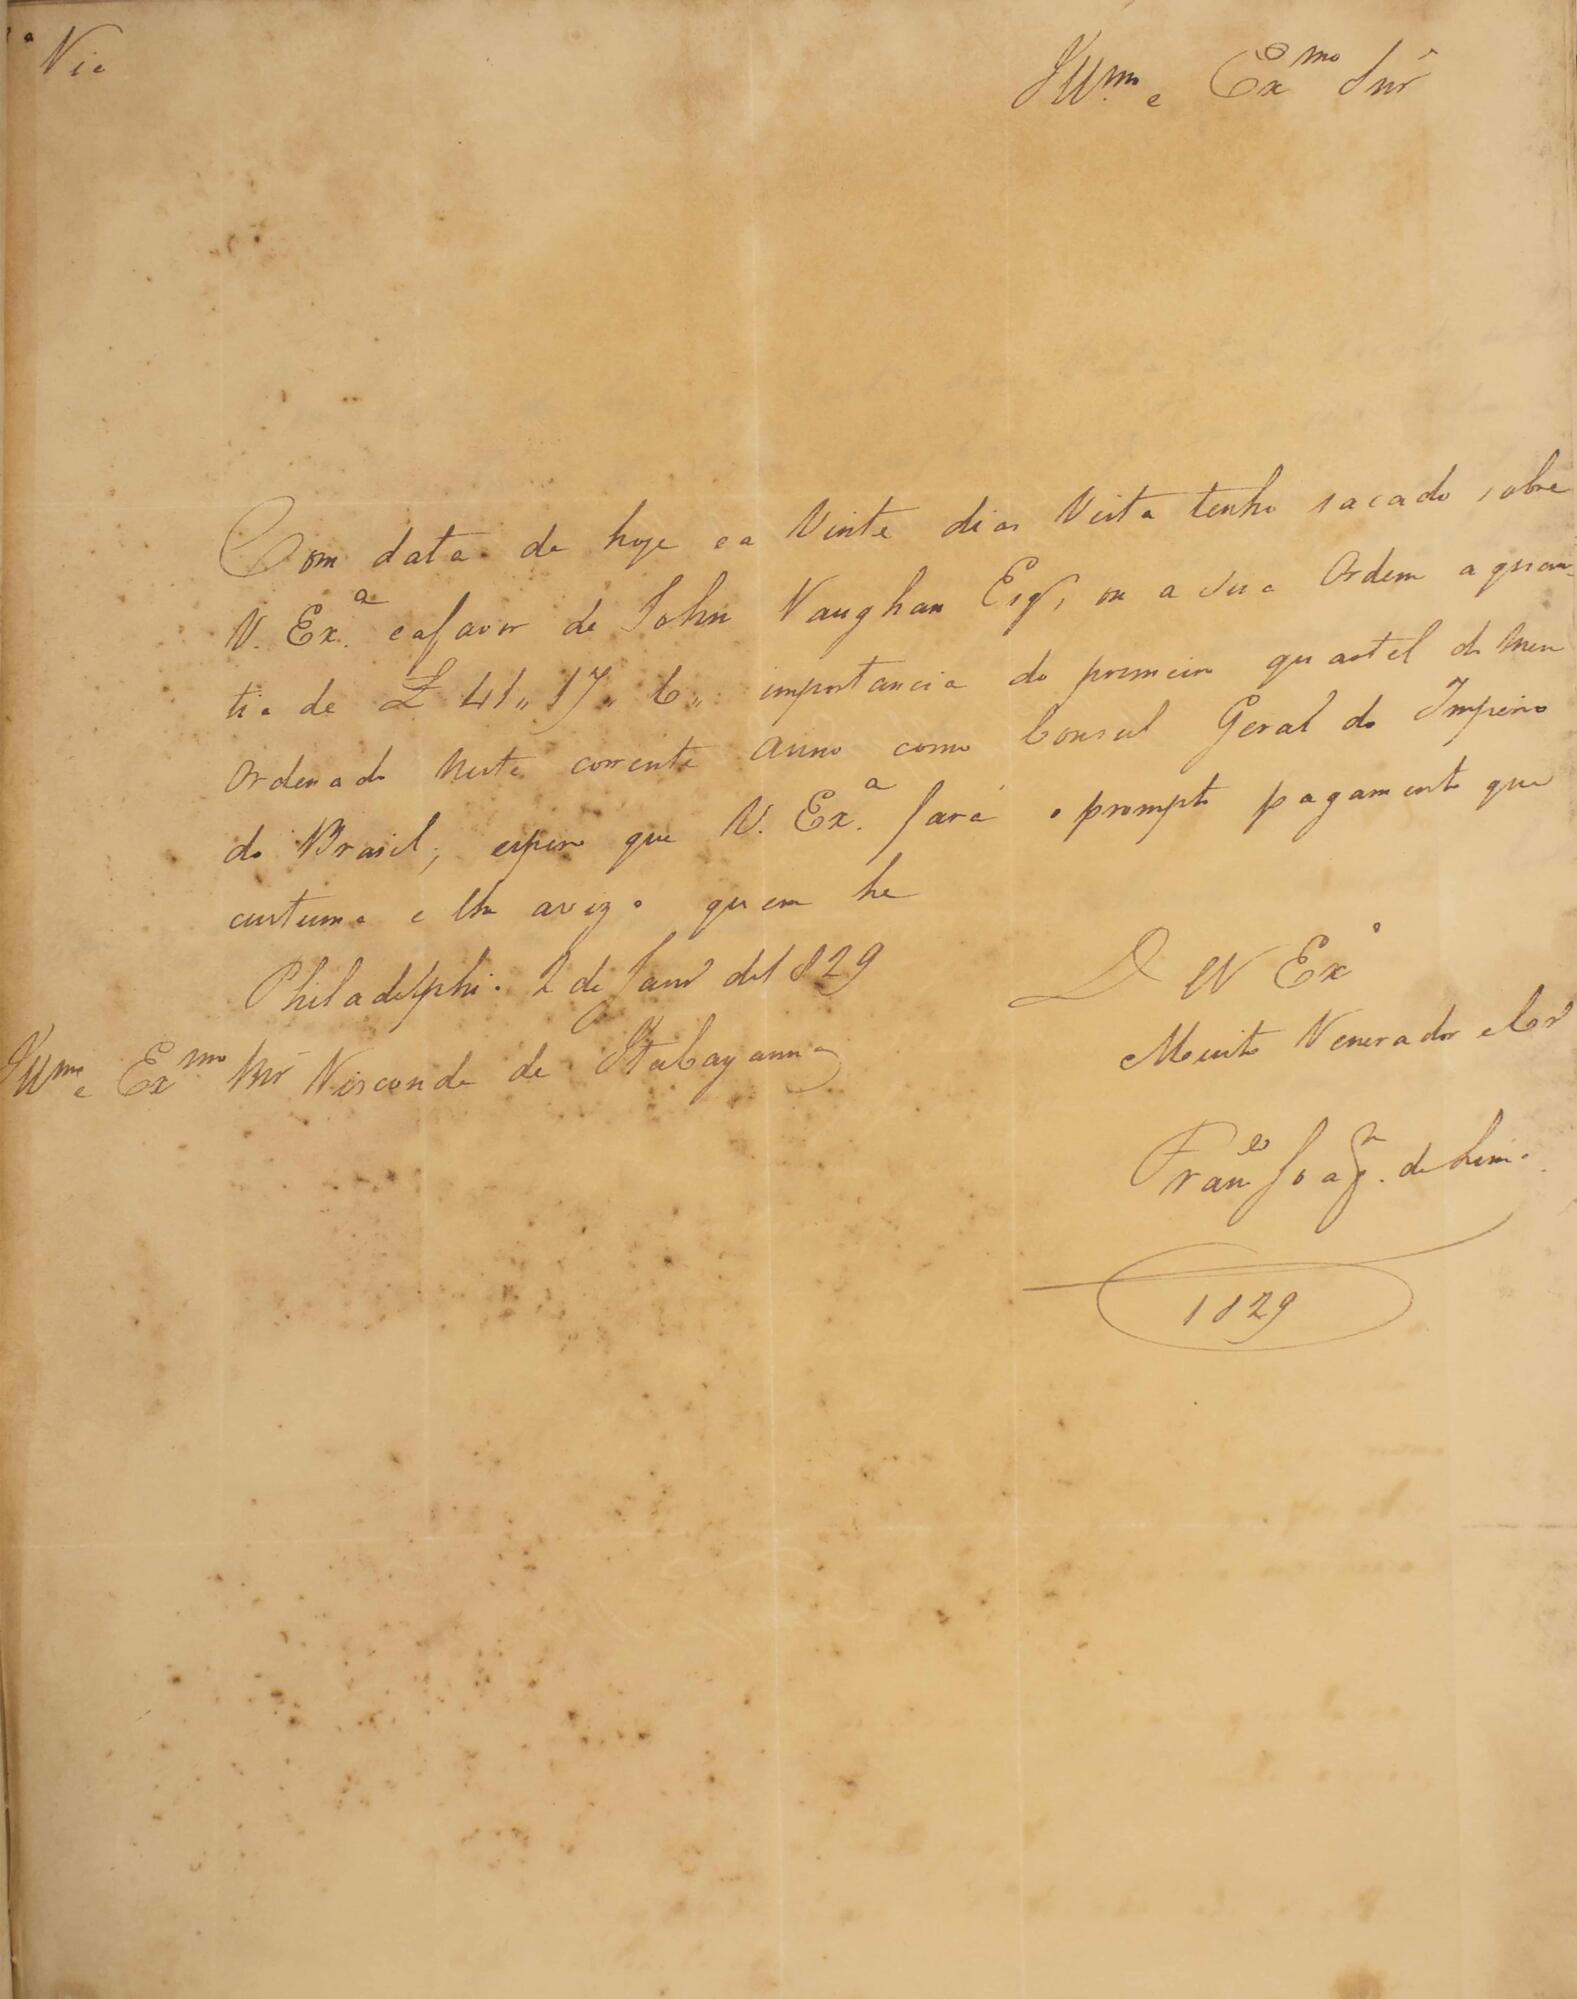 ª Via
Illmo e Exmo Snr
Com data de hoje e a Vinte dias Vista tenho sacado sobre
V. Exª. e a favor de John Vaughan Esqr, ou a sua Ordem a quan-
tia de £ 41,, 17,, 6,, importancia do primeiro quartel do meu
Ordenado neste corrente Anno como Consul Geral do Imperio
do Brasil; espero que V. Exª. fará o prompto pagamento que
custuma e lhe avizo quem he
Philadelphia 2 de Janro de 1829
D V Exª
Muito Venerador e Cro
Illmo e Exmo Snr Visconde de Itabayanna
Franco Joaqm. de Lima
1829